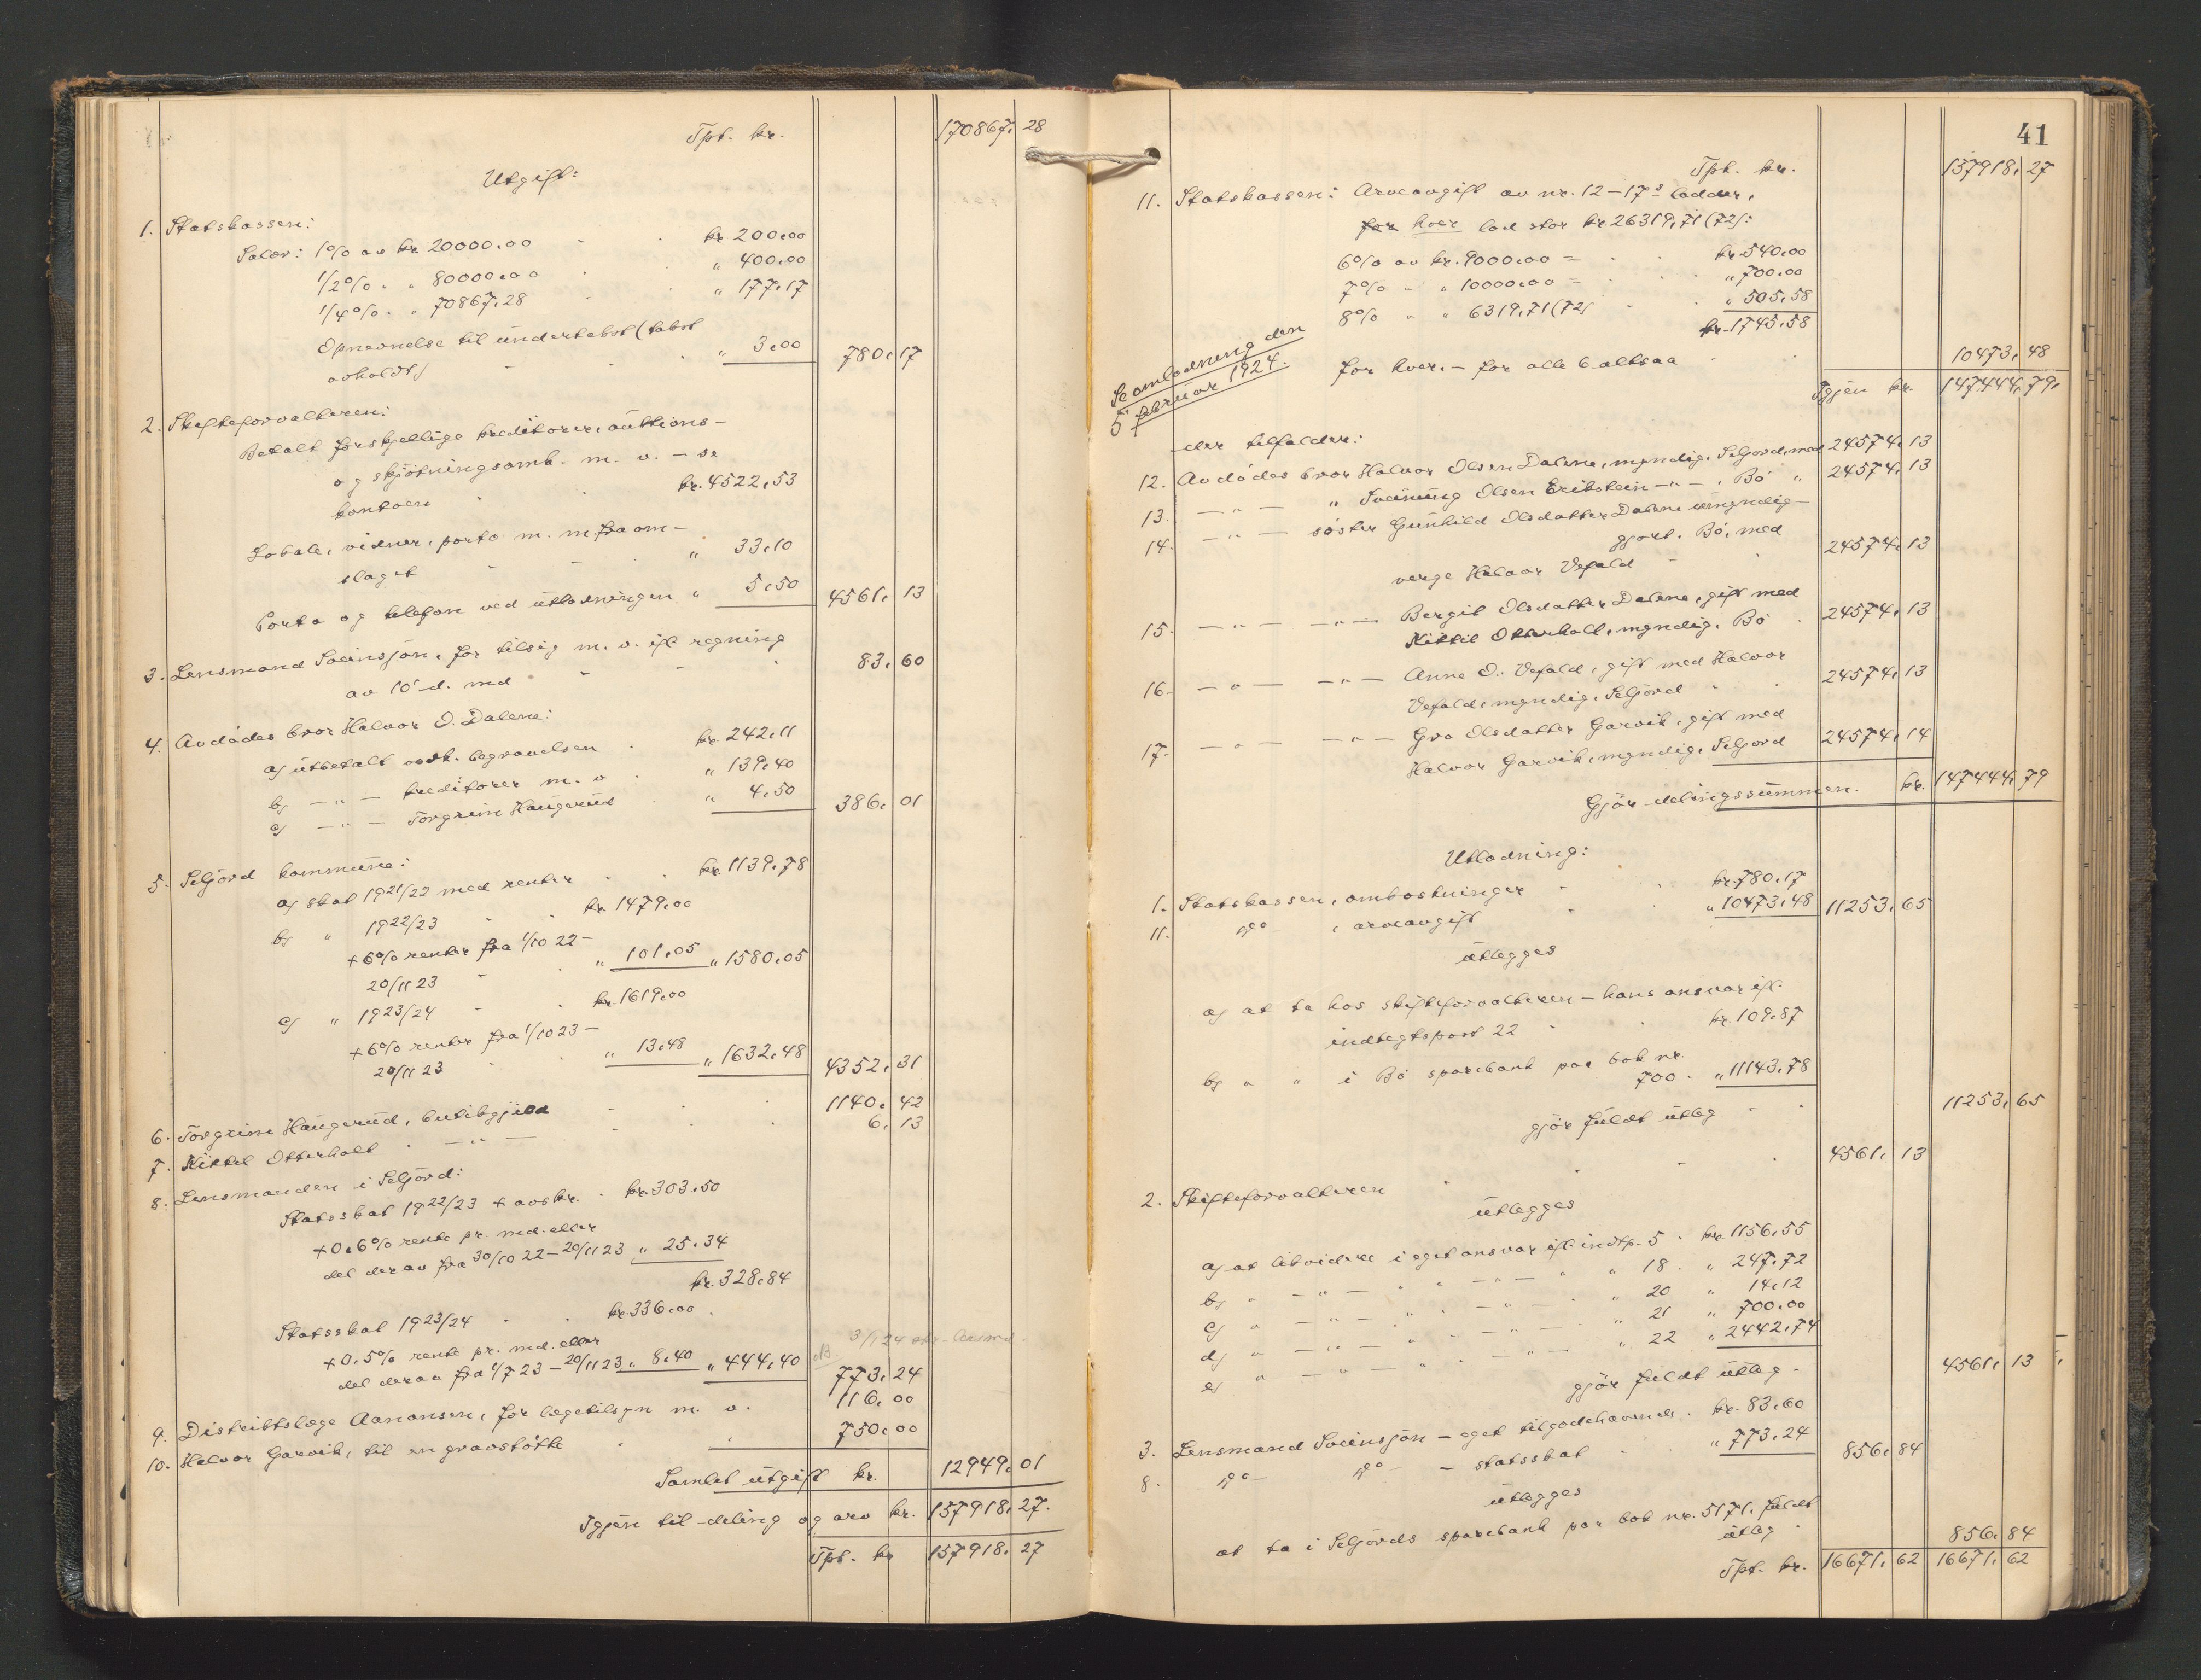 Tpt. kr. 170867, 28
Utgift:
1. Statskassen:
Salær: 1% av kr. 20000,00 kr. 200,00
1/2% " " 80000,00 " 400,00
1/4% " " 70867,28 " 177,17
Opnevnelse til undertakst (takst
avholdt) " 3,00 780, 17
2. Skifteforvalteren:
Betalt forskjellige kreditorer, auktions-
og skjötningsomk. m. v. - se
kontoen kr. 4522,53
Lokale, vidner, porto m. m. fra om-
slaget " 33,10
Porto og telefon ved utlodningen " 5,50 4561, 13
3. Lensmand Sveinsjön, for tilsig m. v. ifl. regning
av 10' d. md 83, 60
4. Avdödes bror Halvor O. Dalene:
a) utbetalt vedk. begravelsen kr. 242,11
b) -"- kreditorer m. v. " 139,40
c) -"- Torgrim Haugerud " 4,50 386, 01
5. Seljord kommune:
a) skat 1921/22 med renter kr. 1139,78
b) " 1922/23 kr. 1479,00
+ 6% renter fra 1/10 22 -
20/11 23 " 101,05 " 1580,05
c) " 1923/24 kr. 1619,00
+ 6% renter fra 1/10 23 -
20/11 23 " 13,48 " 1632,48 4352, 31
6. Torgrim Haugerud, butikgjeld 1140, 42
7. Kittil Otterholt -"- 6, 13
8. Lensmanden i Seljord:
Statsskat 1922/23 + avskr. kr. 303,50
+ 0,6% rente pr. md. eller
del derav fra 30/10 22 - 20/11 23 " 25,34
kr. 328,84
Statsskat 1923/24 kr. 336,00
+ 0,5% rente pr. md. eller
del derav fra 1/7 23 - 20/11 23 " 8,40 " 444,40 773, 24
9. Distriktslæge Aanonsen, for lægetilsyn m. v. 116, 00
10. Halvor Garvik, til en gravstötte 750, 00
Samlet utgift kr. 12949, 01
Igjen til deling og arv kr. 157918, 27.
Tpt. kr 157918, 27
41
Tpt. kr. 157918, 27
11. Statskassen: Arveavgift av nr. 12-17s lodder,
for hver lod stor kr. 26319,71 (72):
6% av kr. 9000,00 = kr. 540,00
7% " " 10000,00 = " 700,00
8% " " 6319,71 (72) " 505,58
kr. 1745,58
for hver. - for alle 6 altsaa 10473, 48
Se omlodning den
5 februar 1924.
Igjen kr. 147444, 79,
der tilfalder:
12. Avdödes bror Halvor Olsen Dalene, myndig, Seljord, med 24574, 13
13. -"- " Sveinung Olsen Erikstein -"-, Bö " 24574, 13
14. -"- söster Gunhild Olsdatter Dalene umyndig-
gjort, Bö, med
verge Halvor Vefald 24574, 13
15. -"- -"- Bergit Olsdatter Dalene, gift med
Kittil Otterholt, myndig, Bö 24574, 13
16. -"- -"- Anne O. Vefald, gift med Halvor
Vefald, myndig, Seljord 24574, 13
17. -"- -"- Gro Olsdatter Garvik, gift med
Halvor Garvik, myndig, Seljord 24574, 14
Gjör delingssummen. kr. 147444, 79
Utlodning:
1. Statskassen, omkostninger kr. 780,17
11. do , arveavgift " 10473,48 11253, 65
utlegges
a) at ta hos skifteforvalteren - hans ansvar ifl.
indtegtspost 22 kr. 109,87
b) " " i Bö sparebank paa bok nr.
700 " 11143,78
gjör fuldt utlæg 11253, 65
2. Skifteforvalteren 4561, 13
utlegges
a) at likvidere i eget ansvar ifl. indtp. 5 kr. 1156,55
b) " -"- " " -"- " 18 " 247,72
c) " -"- " " -"- " 20 " 14,12
d) " -"- " " -"- " 21 " 700,00
e) " -"- " " -"- " 22 " 2442,74
gjör fuldt utlæg 4561, 13
3. Lensmand Sveinsjön - eget tilgodehavende kr. 83,60
8. do do - statsskat " 773,24 856, 84
utlegges
at ta i Seljords sparebank paa bok nr. 5171, fuldt
utlæg 856, 84
Tpt. kr. 16671, 62 16671, 62